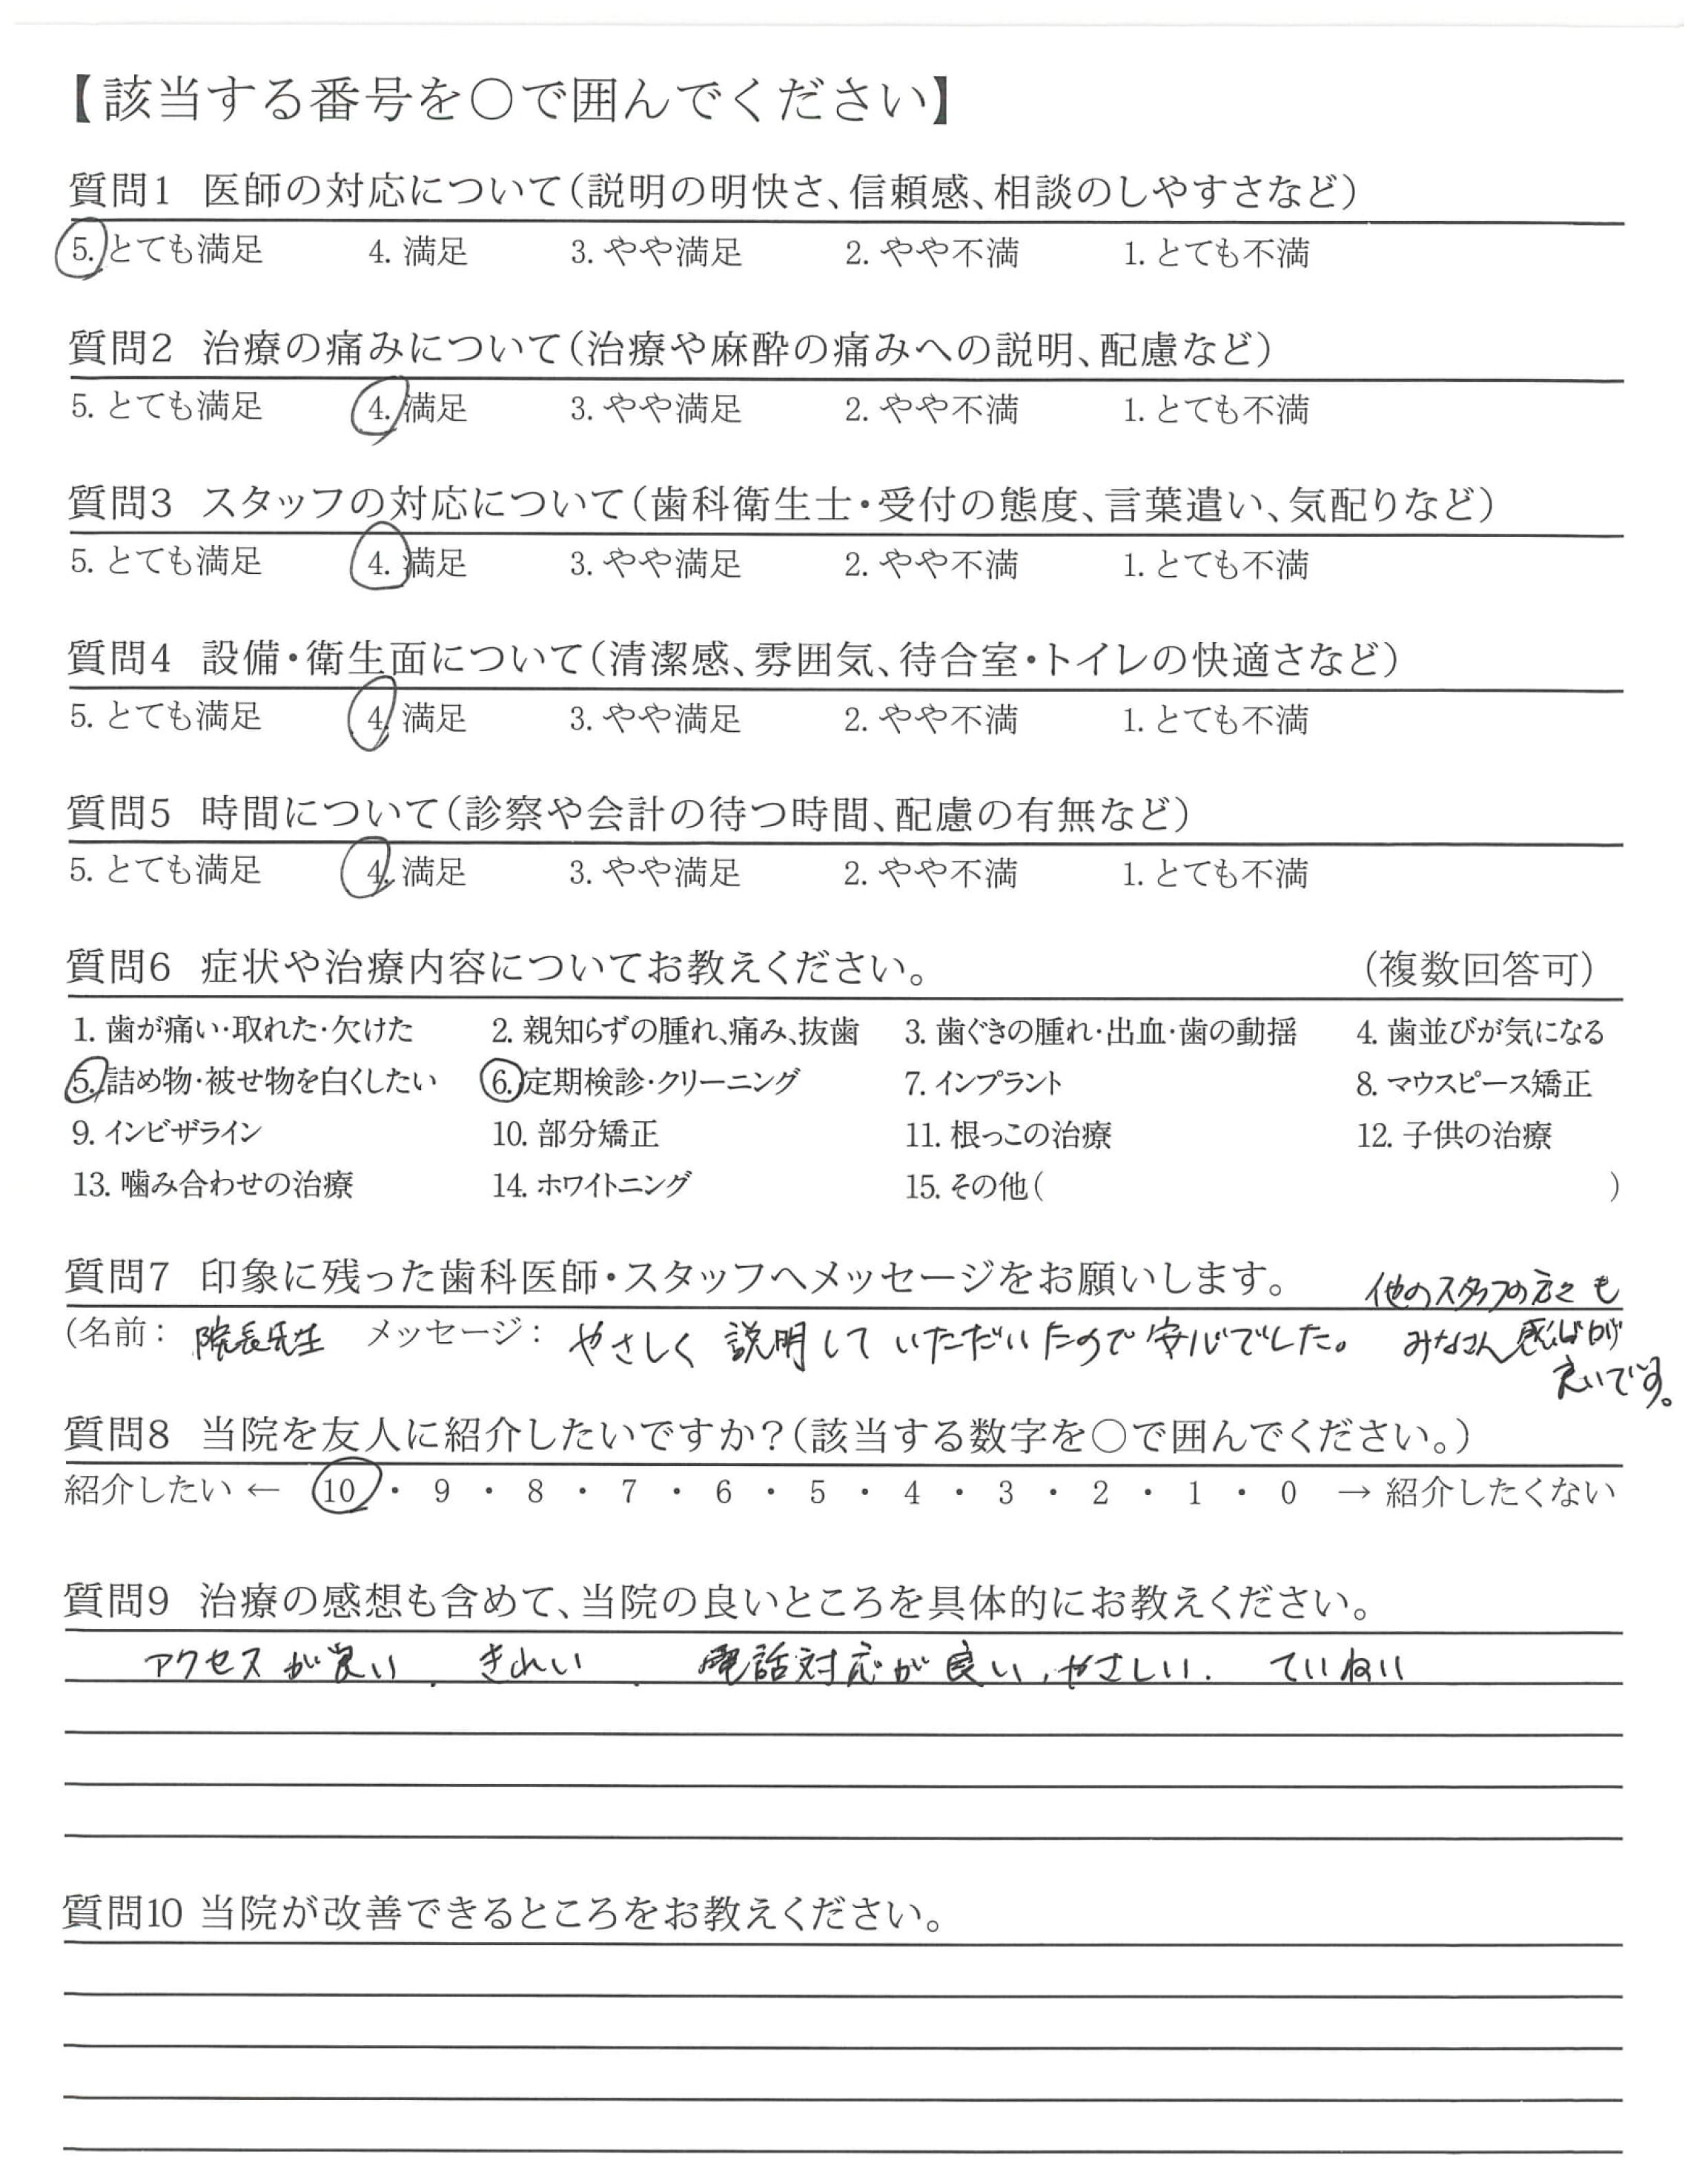 【該当する番号を○で囲んでください】
質問1 医師の対応について(説明の明快さ、信頼感、相談のしやすさなど)
5. とても満足 4. 満足 3. やや満足 2. やや不満 1. とても不満
質問2 治療の痛みについて(治療や麻酔の痛みへの説明、配慮など)
5. とても満足 4. 満足 3. やや満足 2. やや不満 1. とても不満
質問3 スタッフの対応について(歯科衛生士・受付の態度、言葉遣い、気配りなど)
5. とても満足 4. 満足 3. やや満足 2. やや不満 1. とても不満
質問4 設備・衛生面について(清潔感、雰囲気、待合室・トイレの快適さなど)
5. とても満足 4. 満足 3. やや満足 2. やや不満 1. とても不満
質問5 時間について(診察や会計の待つ時間、配慮の有無など)
5. とても満足 4. 満足 3. やや満足 2. やや不満 1. とても不満
質問6 症状や治療内容についてお教えください。 (複数回答可)
1. 歯が痛い・取れた・欠けた 2. 親知らずの腫れ、痛み、抜歯 3. 歯ぐきの腫れ・出血・歯の動揺 4. 歯並びが気になる
5. 詰め物・被せ物を白くしたい 6. 定期検診・クリーニング 7. インプラント 8. マウスピース矯正
9. インビザライン 10. 部分矯正 11. 根っこの治療 12. 子供の治療
13. 噛み合わせの治療 14. ホワイトニング 15. その他( )
質問7 印象に残った歯科医師・スタッフへメッセージをお願いします。
(名前: 院長先生 メッセージ: やさしく説明していただいたので安心でした。
他のスタッフの方々も
みなさん感じが
良いです。
質問8 当院を友人に紹介したいですか?(該当する数字を○で囲んでください。)
紹介したい ← 10 ・ 9 ・ 8 ・ 7 ・ 6 ・ 5 ・ 4 ・ 3 ・ 2 ・ 1 ・ 0 → 紹介したくない
質問9 治療の感想も含めて、当院の良いところを具体的にお教えください。
アクセスが良い、きれい、電話対応が良い、やさしい、ていねい
質問10 当院が改善できるところをお教えください。